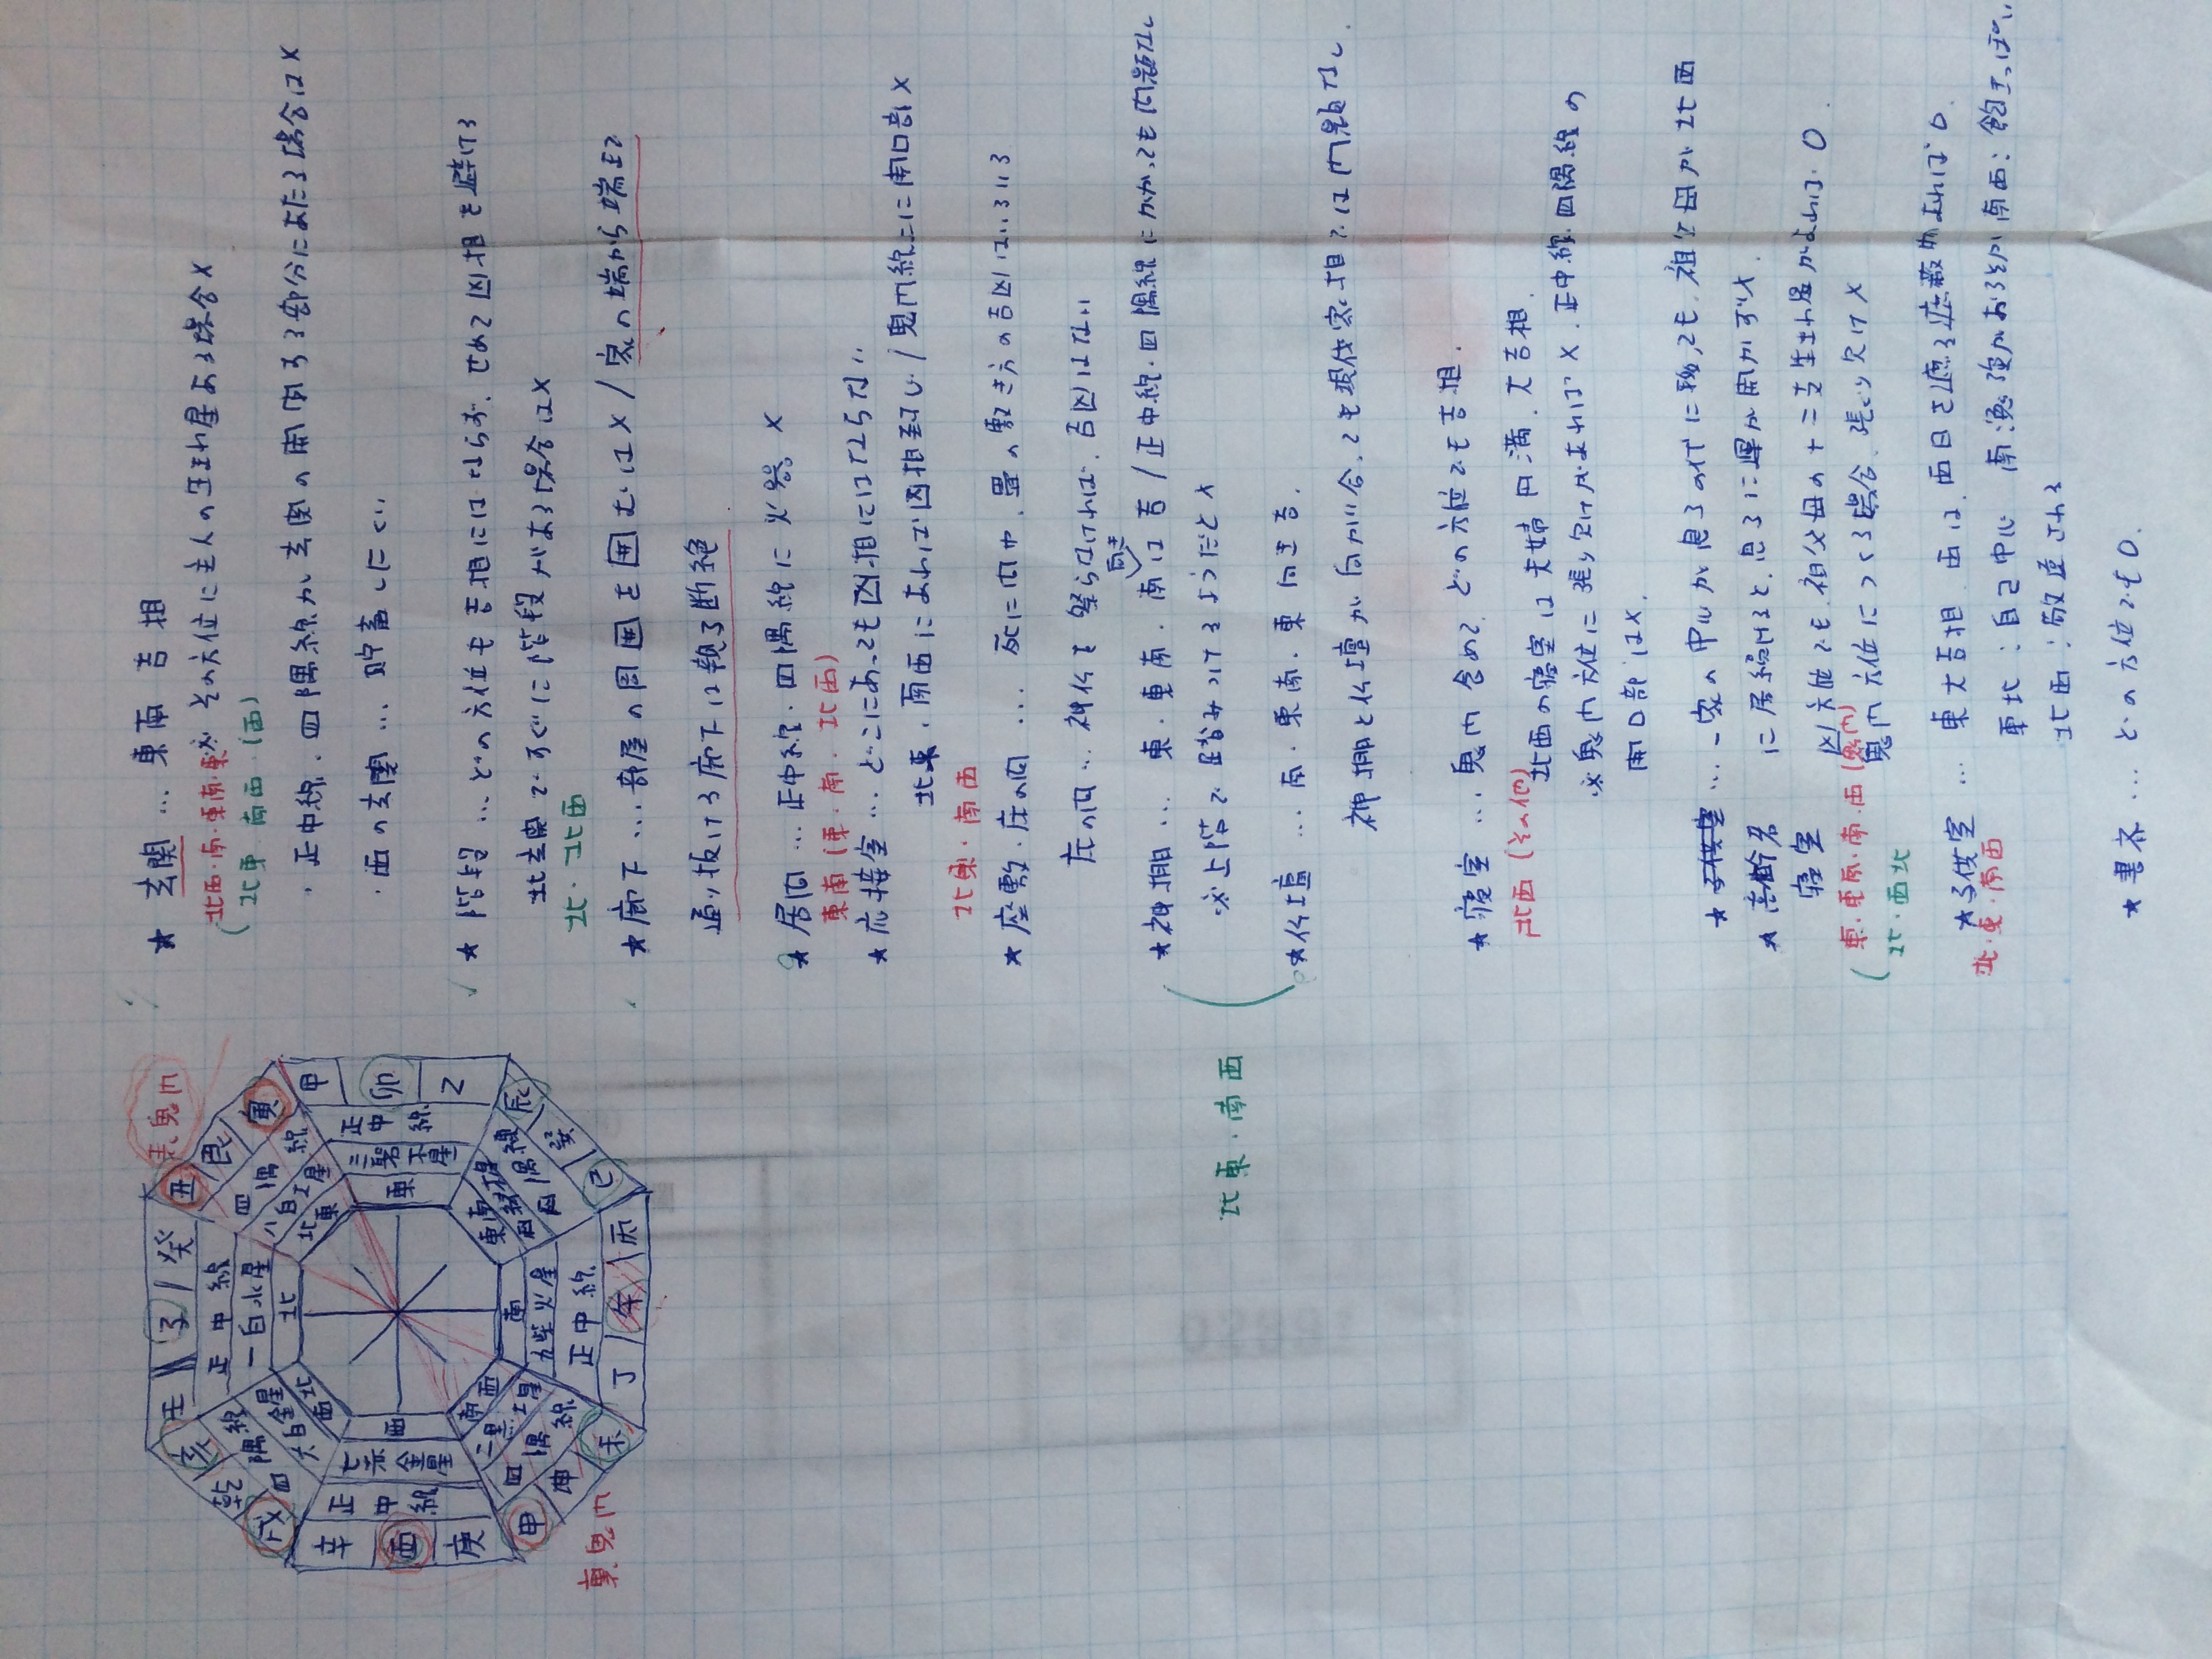 表鬼門
丑 艮 寅
甲 卯 乙
辰 巽 巳
丙 午 丁
未 坤 申
庚 酉 辛
戌 乾 亥
壬 子 癸
正中線
一白水星
北
四隅線
八白土星
北東
正中線
三碧木星
東
四隅線
四緑木星
東南
正中線
九紫火星
南
四隅線
二黒土星
南西
正中線
七赤金星
西
四隅線
六白金星
西北
裏鬼門
★玄関 … 東南 吉相
※その方位に主人の生まれ星ある場合×
北西・南・東南・東
(北東 南西・(西)
・正中線・四隅線が玄関の開閉する部分にあたる場合は×
・西の玄関 … 貯蓄しにくい
★階段 … どの方位も吉相にはならず、せめて凶相を避ける
北玄関ですぐに階段がある場合は×
北・北西
★廊下 … 部屋の周囲を囲むは×/家の端から端まで
通り抜ける廊下は親子断絶
★居間 … 正中線・四隅線に火器×
東南(東・南・北西)
★応接室 … どこにあっても凶相にはならない
北東・南西にあれば凶相封じ/鬼門線上に開口部×
北東・南西
★座敷・床の間 … 死に間や、畳の敷き方の吉凶はいろいろ
床の間 … 神仏を祭らなければ、吉凶はない
★神棚 … 東・東南・南向きは吉/正中線・四隅線にかかっても問題なし
※上階で踏みつけるようだと×
(★仏壇 … 南・東南・東向き吉.
神棚と仏壇が向かい合っても現代家相では問題なし.
北東・南西
★寝室 … 鬼門含めて、どの方位でも吉相.
北西(その他)
北西の寝室は夫婦円満、大吉相.
※鬼門方位に張り欠けがあれば×.正中線・四隅線の
開口部は×.
★子供室 … 一家の中心が息子の代に移っても、祖父母が北西
★高齢者
寝室
に居続けると、息子に運が開かず×.
凶方位でも、祖父母の十二支生まれ星がよければ○.
東・東南・南・西(鬼門)
鬼門方位につくる場合、張り欠け×
(北・西北
★子供室 … 東大吉相.西は、西日を遮る遮蔽物よければ○.
北・東・南西
東北:自己中心
北西:敬遠される
★書斎 … どの方位でも○.